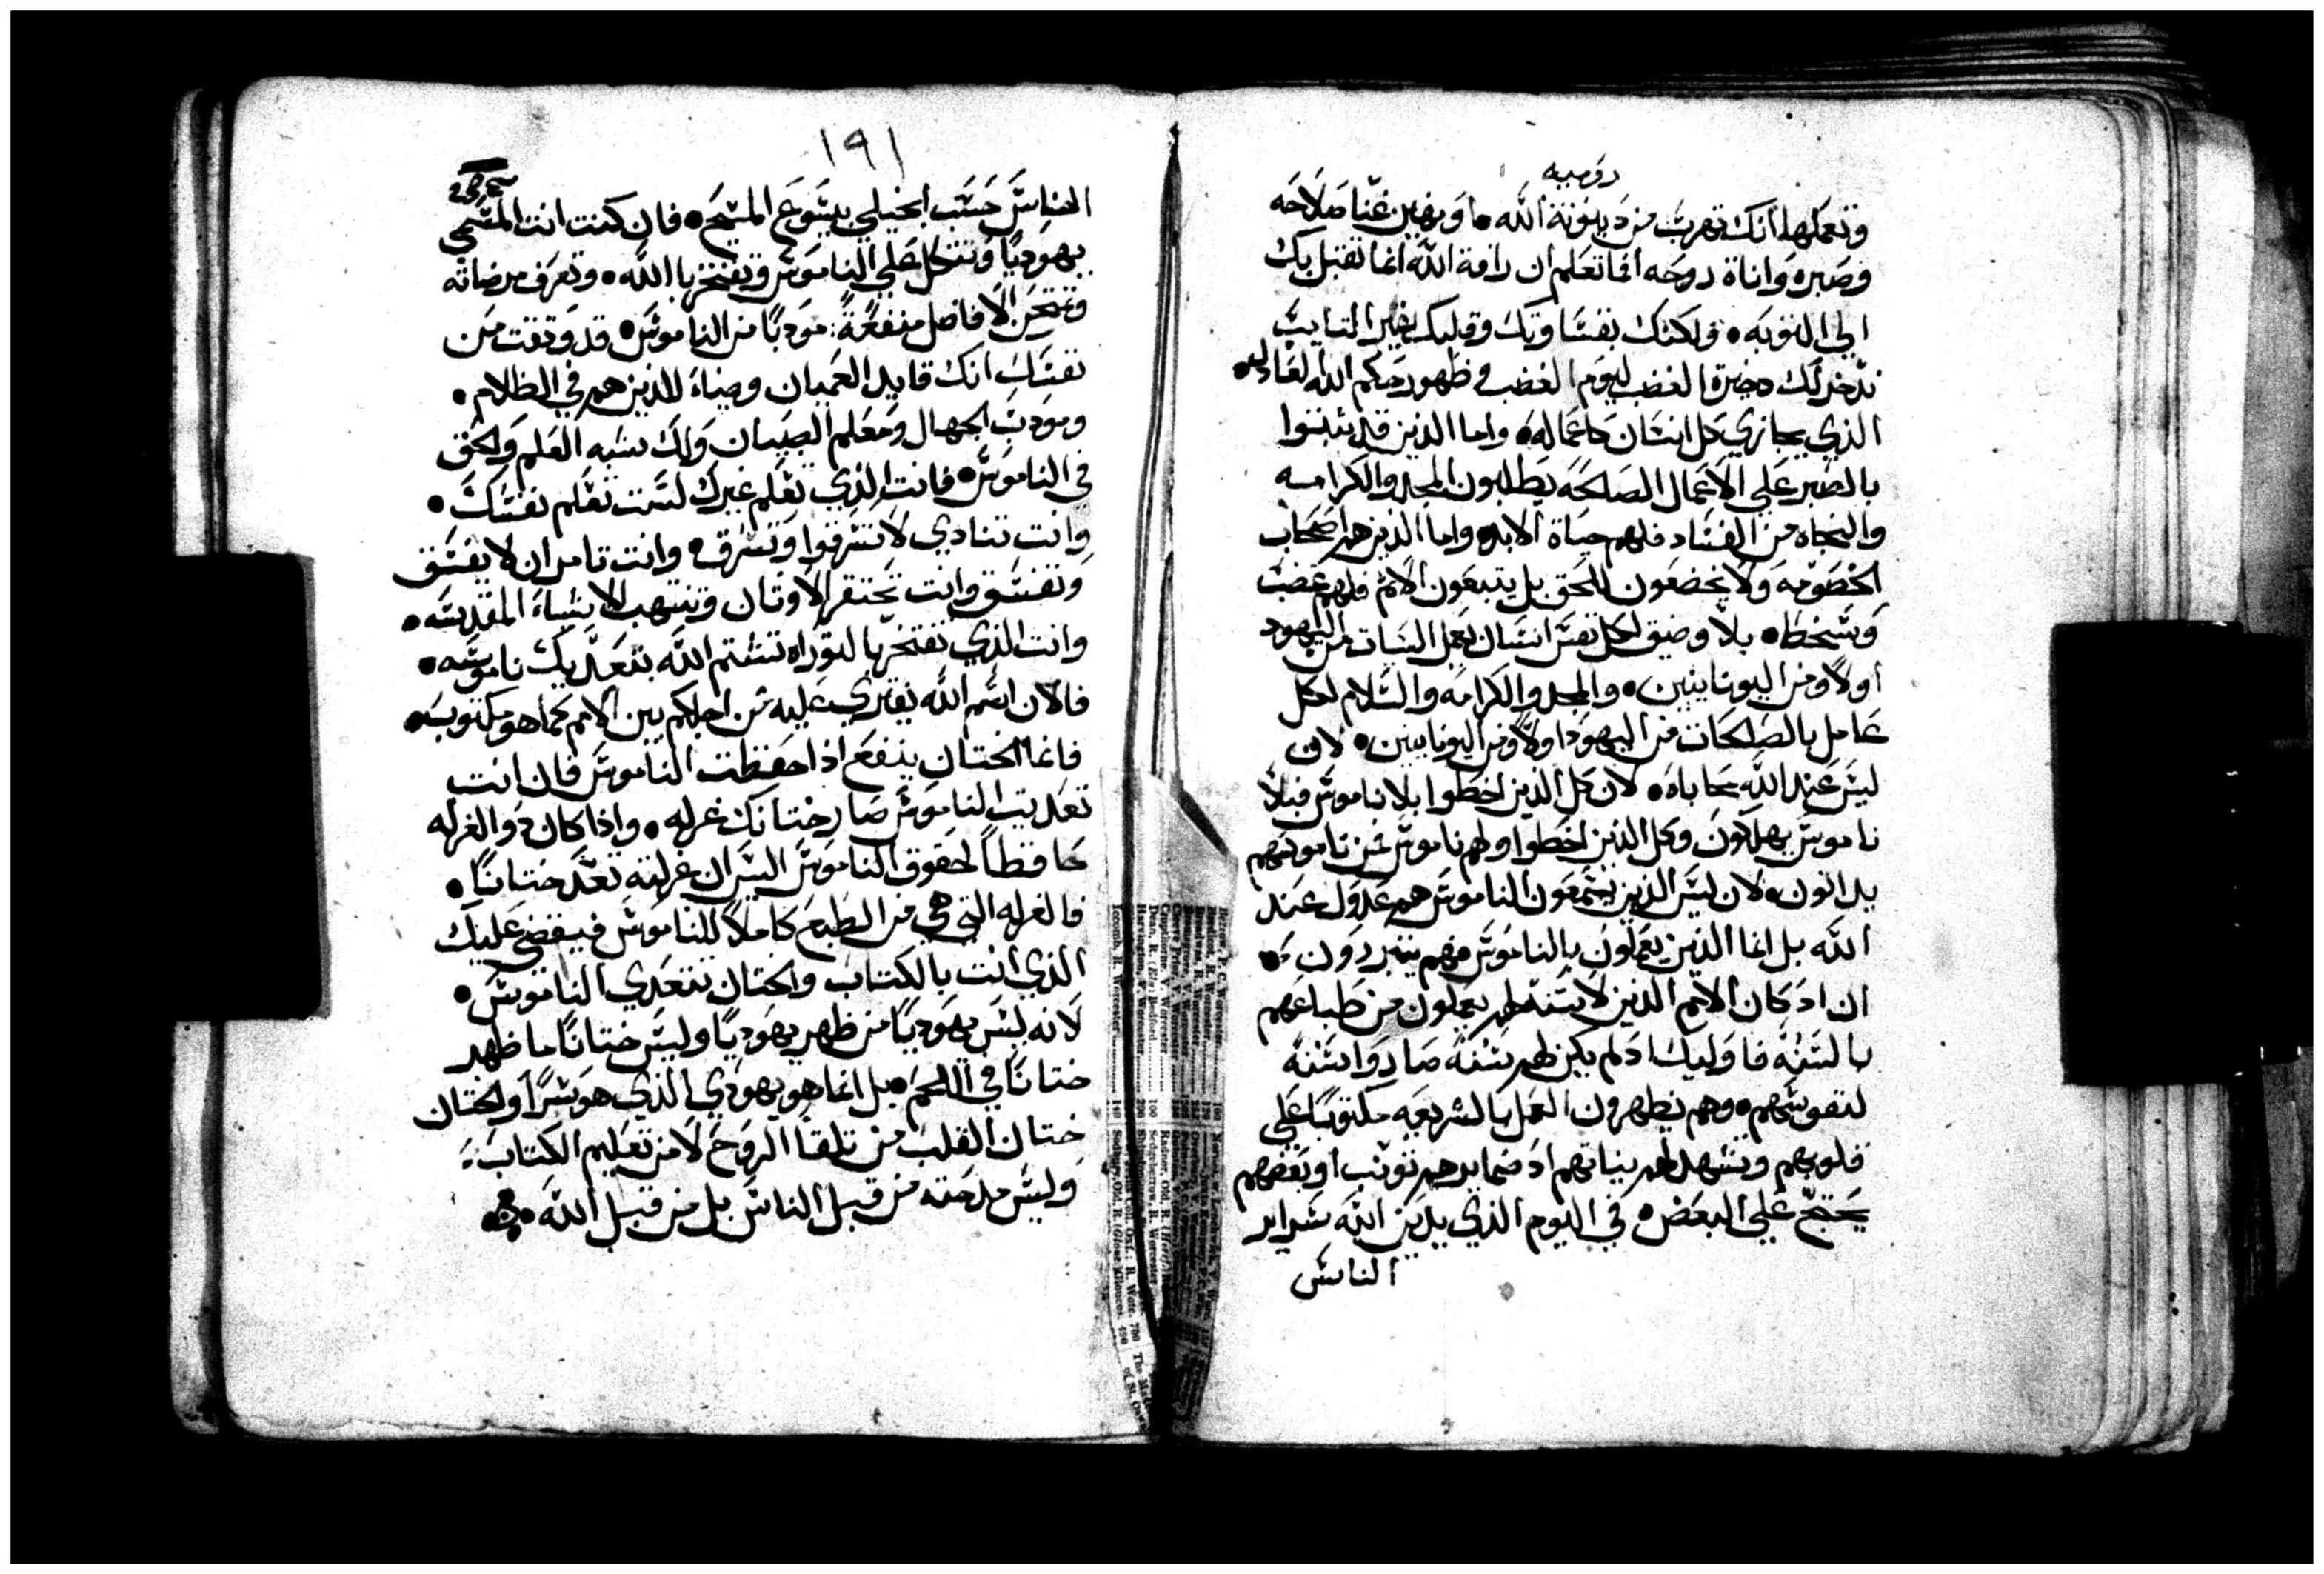 روميه
وتعملها انك تهرب من دينونة الله • او تهين غنا صلاحه
وصبره واناة روحه اما تعلم ان رافة الله انما تقبل بك
الي التوبه • ولكنك بقساوتك وقلبك الغير التايب
تدخر لك دخيرة الغضب ليوم الغضب وظهور حكم الله العادل •
الذي يجازي كل انسان كاعماله • واما الذين قد ثبتوا
بالصبر علي الاعمال الصالحه يطلبون المجد والكرامه
والنجاه من الفساد فلهم حياة الابد • واما الذين هم اصحاب
الخصومه ولا يخضعون للحق بل يتبعون الاثم فلهم غضب
وسخط • بلا وضيق لكل نفس انسان يعمل السيات من اليهود
اولاً ومن اليونانيين • والمجد والكرامه والسلام لكل
عامل بالصالحات من اليهود اولاً ومن اليونانيين • لان
ليس عند الله محاباه • لان كل الذين اخطوا بلا ناموس فبلا
ناموس يهلكون وكل الذين اخطوا ولهم ناموس فمن ناموسهم
يدانون • لان ليس الذين يسمعون الناموس هم عدول عند
الله بل انما الذين يعملون بالناموس فهم يتبررون •
ان اد كان الامم الذين لا سنه لهم يعملون من طباعهم
بالسنه فاوليك اد لم يكن لهم سنه صاروا سنه
لنفوسهم • وهم يظهرون العمل بالشريعه مكتوباً علي
قلوبهم وتشهد لهم نياتهم اد ضمايرهم توبخ او بعضهم
يحتج علي البعض • في اليوم الذي يدين الله سراير
الناس
١٩١
الناس حسب انجيلي بيسوع المسيح • فان كنت انت المسمي
يهودياً وتتكل علي الناموس وتفتخر بالله • وتعرف مرضاته
وتمتحن الافاضل منفعةً مودباً من الناموس • قد وثقت من
نفسك انك قايد العميان وضياءً للذين هم في الظلام •
ومودب الجهال ومعلم الصبيان ولك شبه العلم والحق
في الناموس • فانت الذي تعلم غيرك لست تعلم نفسك •
وانت تنادي لا تسرقوا وتسرق • وانت تامر ان لا يفسق
وتفسق وانت تحتقر الاوتان وتنتهب الاشياء المقدسه •
وانت الذي تفتخر بالتوراه تشتم الله بتعديك ناموسه •
فالان اسم الله يفتري عليه من اجلكم بين الامم كما هو مكتوب •
فانما الختان ينفع اذا حفظت الناموس فان انت
تعديت الناموس صار ختانك غرله • واذا كان ذو الغرله
حافظاً لحقوق الناموس اليس ان غرلته تعد ختاناً •
فالغرله التي هي من الطباع كاملاً للناموس فيقضي عليك
الذي انت بالكتاب والختان تتعدي الناموس •
لانه ليس يهودياً من ظهر يهودياً وليس ختاناً ما ظهر
ختاناً في اللحم • بل انما هو يهودي الذي هو سراً والختان
ختان القلب من تلقا الروح لا من تعليم الكتاب •
وليس مدحته من قبل الناس بل من قبل الله •